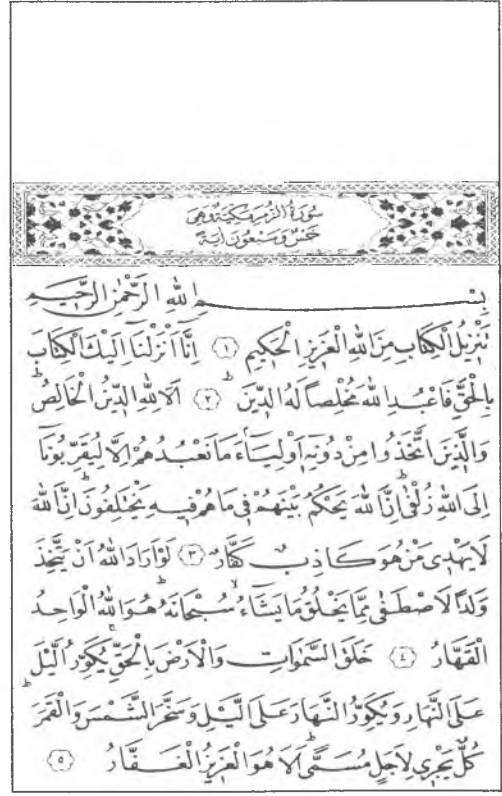 سُورَةُ الزُّمَرِ مَكِّيَّةٌ وَهِيَ
خَمْسٌ وَسَبْعُونَ اٰيَةً
بِسْمِ اللّٰهِ الرَّحْمٰنِ الرَّحٖيمِ
تَنْزٖيلُ الْكِتَابِ مِنَ اللّٰهِ الْعَزٖيزِ الْحَكٖيمِ ﴿١﴾ اِنَّٓا اَنْزَلْنَٓا اِلَيْكَ الْكِتَابَ
بِالْحَقِّ فَاعْبُدِ اللّٰهَ مُخْلِصًا لَهُ الدّٖينَؕ ﴿٢﴾ اَلَا لِلّٰهِ الدّٖينُ الْخَالِصُؕ
وَالَّذٖينَ اتَّخَذُوا مِنْ دُونِهٖٓ اَوْلِيَٓاءَ مَا نَعْبُدُهُمْ اِلَّا لِيُقَرِّبُونَٓا
اِلَى اللّٰهِ زُلْفٰىؕ اِنَّ اللّٰهَ يَحْكُمُ بَيْنَهُمْ فٖى مَا هُمْ فٖيهِ يَخْتَلِفُونَؕ اِنَّ اللّٰهَ
لَا يَهْدٖى مَنْ هُوَ كَاذِبٌ كَفَّارٌ ﴿٣﴾ لَوْ اَرَادَ اللّٰهُ اَنْ يَتَّخِذَ
وَلَدًا لَاصْطَفٰى مِمَّا يَخْلُقُ مَا يَشَٓاءُۙ سُبْحَانَهُؕ هُوَ اللّٰهُ الْوَاحِدُ
الْقَهَّارُ ﴿٤﴾ خَلَقَ السَّمٰوَاتِ وَالْاَرْضَ بِالْحَقِّۚ يُكَوِّرُ الَّيْلَ
عَلَى النَّهَارِ وَيُكَوِّرُ النَّهَارَ عَلَى الَّيْلِ وَسَخَّرَ الشَّمْسَ وَالْقَمَرَؕ
كُلٌّ يَجْرٖى لِاَجَلٍ مُسَمًّىؕ اَلَا هُوَ الْعَزٖيزُ الْغَفَّارُ ﴿٥﴾